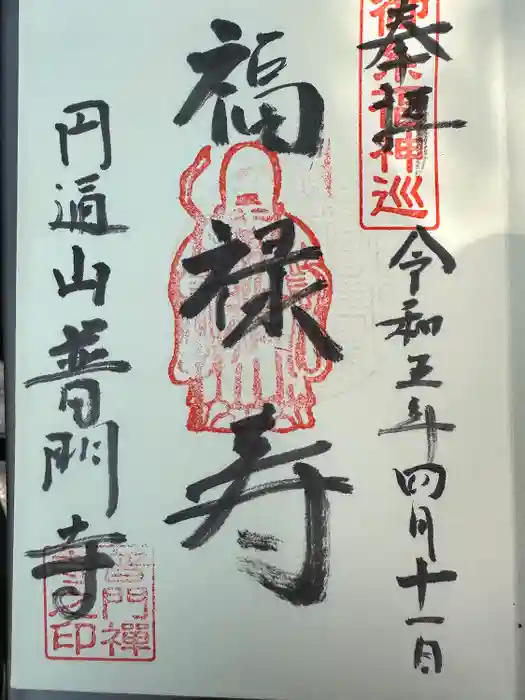 奉拝
令和五年四月十一日
福禄寿
円通山普門寺
七福神巡
普門禅
寺之印